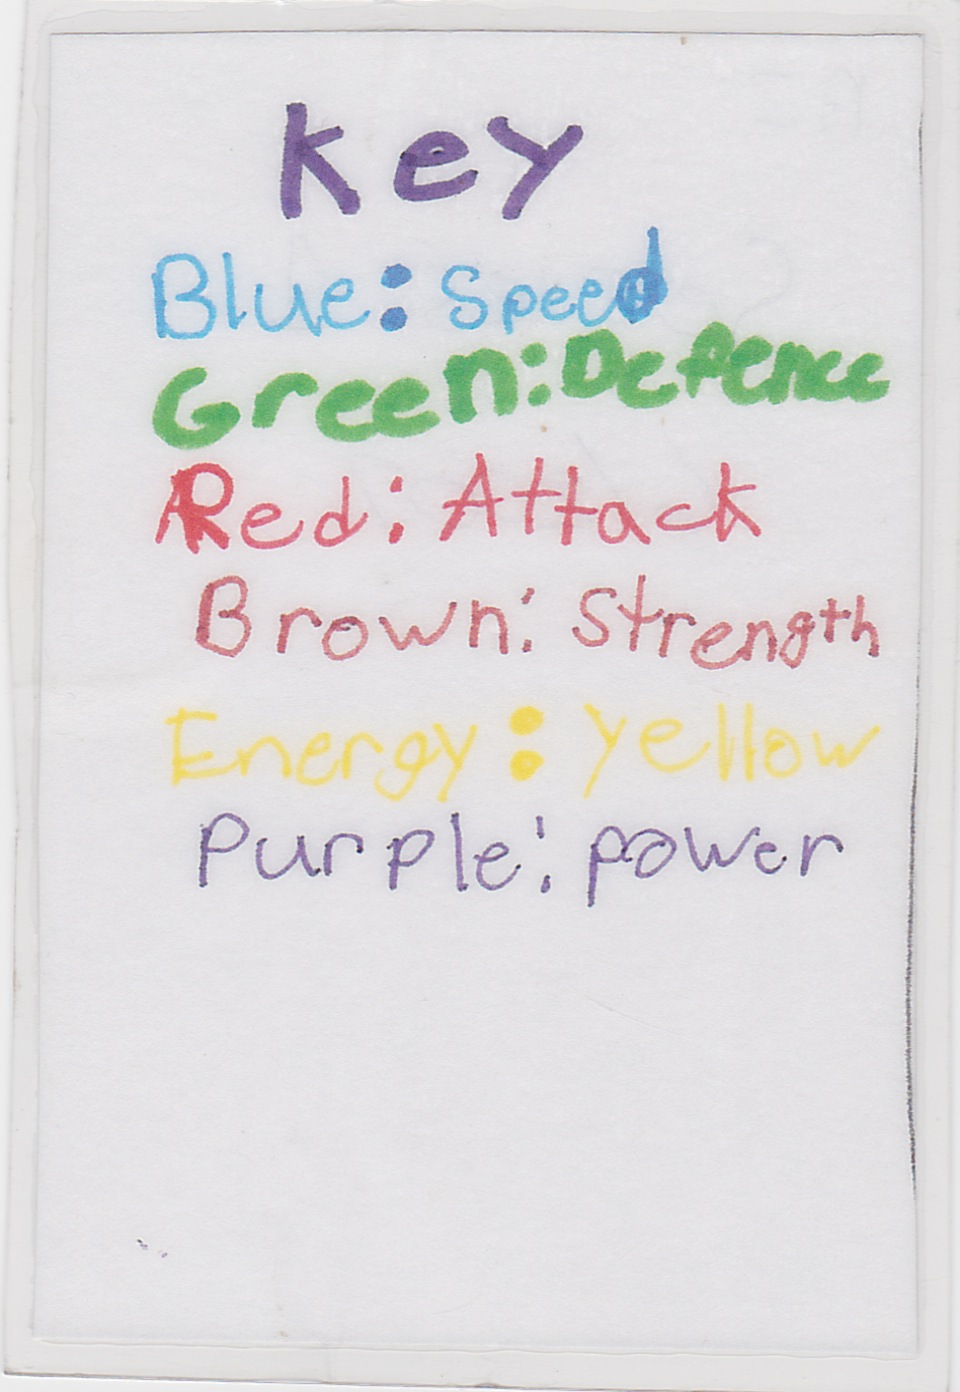 Key
Blue: Speed
Green: Defence
Red: Attack
Brown: Strength
Energy: Yellow
Purple: power